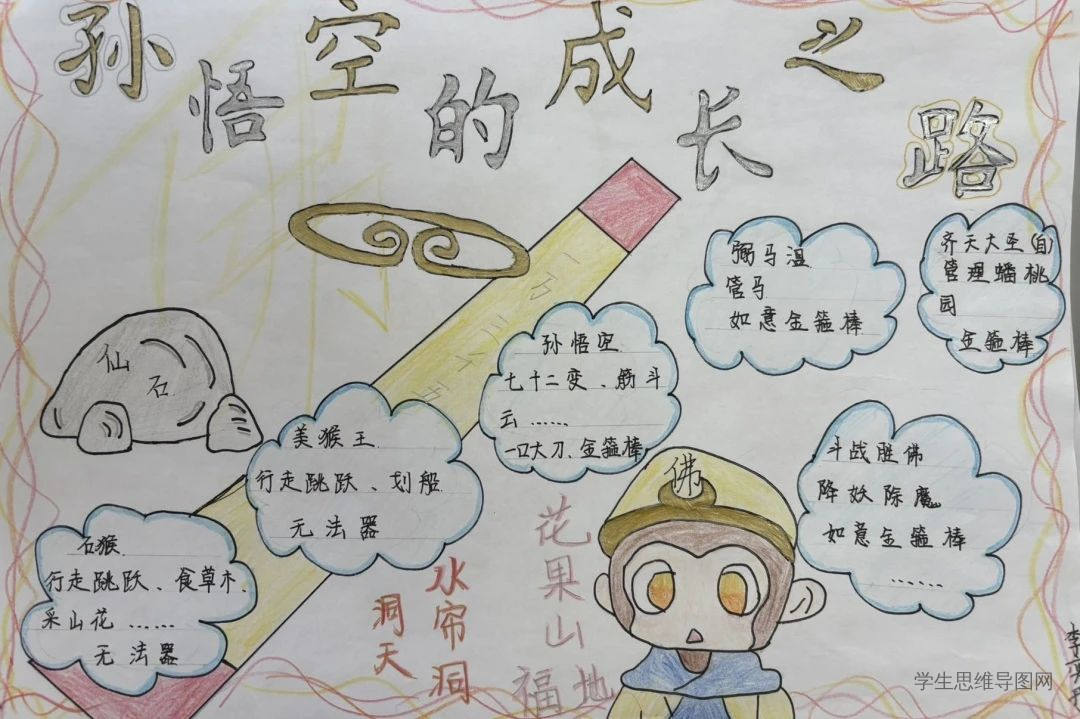 孙悟空的成长之路
仙
石
石猴
行走跳跃、食草木、
采山花……
无法器
美猴王
行走跳跃、划船
无法器
孙悟空
七十二变、筋斗
云……
一口大刀、金箍棒
弼马温
管马
如意金箍棒
齐天大圣(自)
管理蟠桃
园
金箍棒
斗战胜佛
降妖除魔
如意金箍棒
……
佛
水帘洞
洞天
花果山
福地
学生思维导图网